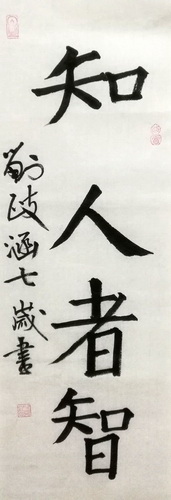 知人者智
劉政涵七歲書